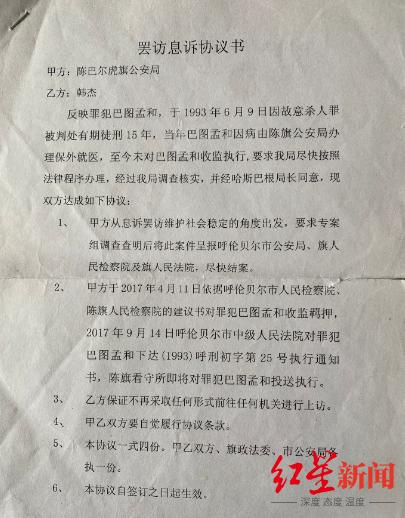 罢访息诉协议书
甲方：陈巴尔虎旗公安局
乙方：韩杰
反映罪犯巴图孟和，于 1993 年 6 月 9 日因故意杀人罪
被判处有期徒刑 15 年，当年巴图孟和因病由陈旗公安局办
理保外就医，至今未对巴图孟和收监执行，要求我局尽快按照
法律程序办理，经过我局调查核实，并经哈斯巴根局长同意，现
双方达成如下协议：
1、 甲方从息诉罢访维护社会稳定的角度出发，要求专案
组调查查明后将此案件呈报呼伦贝尔市公安局、旗人
民检察院及旗人民法院，尽快结案。
2、 甲方于 2017 年 4 月 11 日依据呼伦贝尔市人民检察院、
陈旗人民检察院的建议书对罪犯巴图孟和收监羁押，
2017 年 9 月 14 日呼伦贝尔市中级人民法院对罪犯
巴图孟和下达(1993)呼刑初字第 25 号执行通知
书，陈旗看守所即将对罪犯巴图孟和投送执行。
3、 乙方保证不再采取任何形式前往任何机关进行上访。
4、 甲乙双方要自觉履行协议条款。
5、 本协议一式四份。甲乙双方、旗政法委、市公安局各
执一份。
6、 本协议自签订之日起生效。
红星新闻
深度 态度 温度